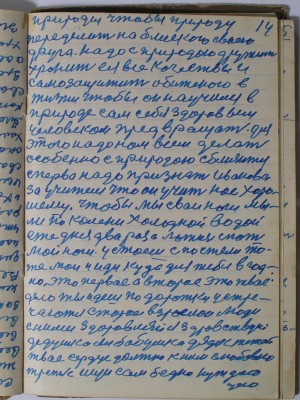 природы чтобы природу 14
передават на близкого своего
друга. надо с природою дружит
хранит ея все качествы и
самозащитит
жизни чтобы он научился в
природе сам себя здоровым
человеком превращат. для
этого надо нам всем делат
с природою сближат
сперва надо признат Иванова
за учителя что он учит нас хоро
шему, чтобы мы свои ноги мы
ли по колени холодной водой
ежедневно два раза ложися спат
мой ноги. устаеш с постели то
же мой и иди куда для тебя
но, это первае а второе это твае
дело ты идеш по дорожки устре
чаются старое взрослое люди
с ними здоровайся здравствуй
дедушка ли бабушка дядя тетя
твае сердце должно к ним
ищи сам бедно нуждаю
щего